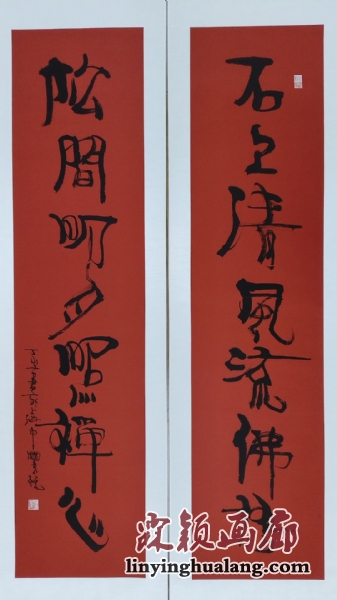 石上清風流佛性
松間明月照禪心
颖画廊
linyinghualang.com